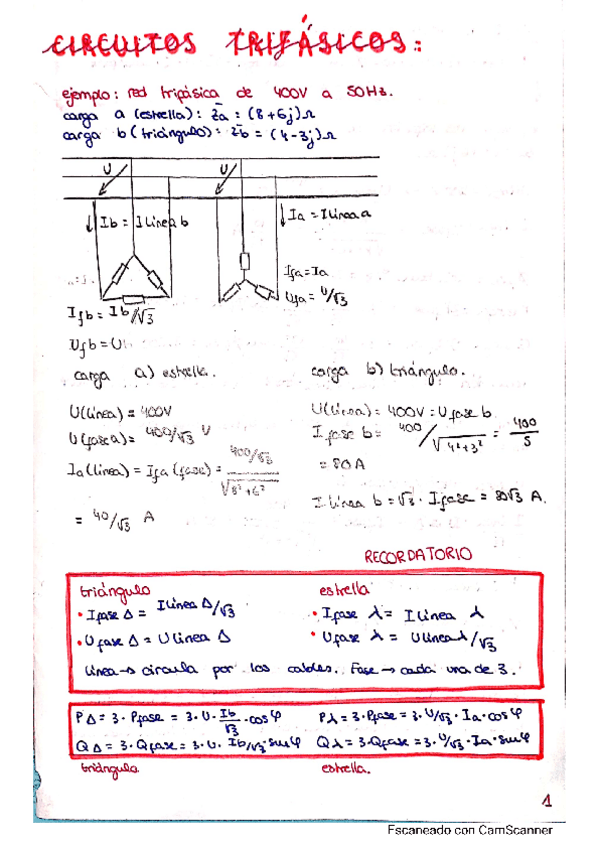 CIRCUITOS TRIFÁSICOS:
ejemplo: red trifásica de 400V a 50Hz.
carga a (estrella): Z̄a = (8+6j)Ω
carga b (triángulo): Z̄b = (4-3j)Ω
U U
Ib = I línea b
Ia = I línea a
Ifa = Ia
Ufa = U/√3
Ifb = Ib/√3
Ufb = U
carga a) estrella. carga b) triángulo.
U(línea) = 400V
U(fase a) = 400/√3 V
Ia(línea) = Ifa (fase) = 400/√3 / √8²+6²
= 40/√3 A
U(línea) = 400V = U fase b
I fase b = 400/√4²+3² = 400/5
= 80A
I línea b = √3 · I fase = 80√3 A.
RECORDATORIO
triángulo estrella
• I fase Δ = I línea Δ/√3 • I fase λ = I línea λ
• U fase Δ = U línea Δ • U fase λ = U línea λ/√3
línea → circula por los cables. Fase → cada una de 3.
PΔ = 3 · Pfase = 3 · U · Ib/√3 · cos φ Pλ = 3 · Pfase = 3 · U/√3 · Ia · cos φ
QΔ = 3 · Qfase = 3 · U · Ib/√3 sen φ Qλ = 3 · Qfase = 3 · U/√3 · Ia · sen φ
triángulo estrella.
1
Escaneado con CamScanner